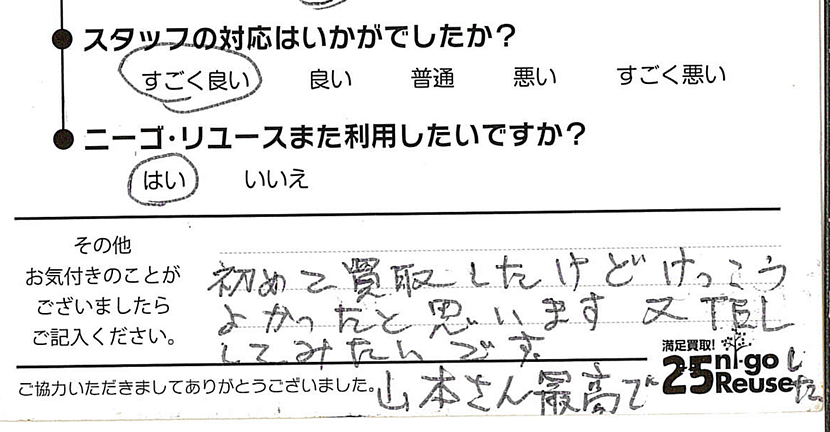 スタッフの対応はいかがでしたか？
すごく良い 良い 普通 悪い すごく悪い
ニーゴ・リユースまた利用したいですか？
はい いいえ
その他
お気付きのことが
ございましたら
ご記入ください。
初めて買取したけどけっこう
よかったと思います 又TEL
してみたいです。
満足買取！
25 ni-go
Reuse
ご協力いただきましてありがとうございました。
山本さん最高でした